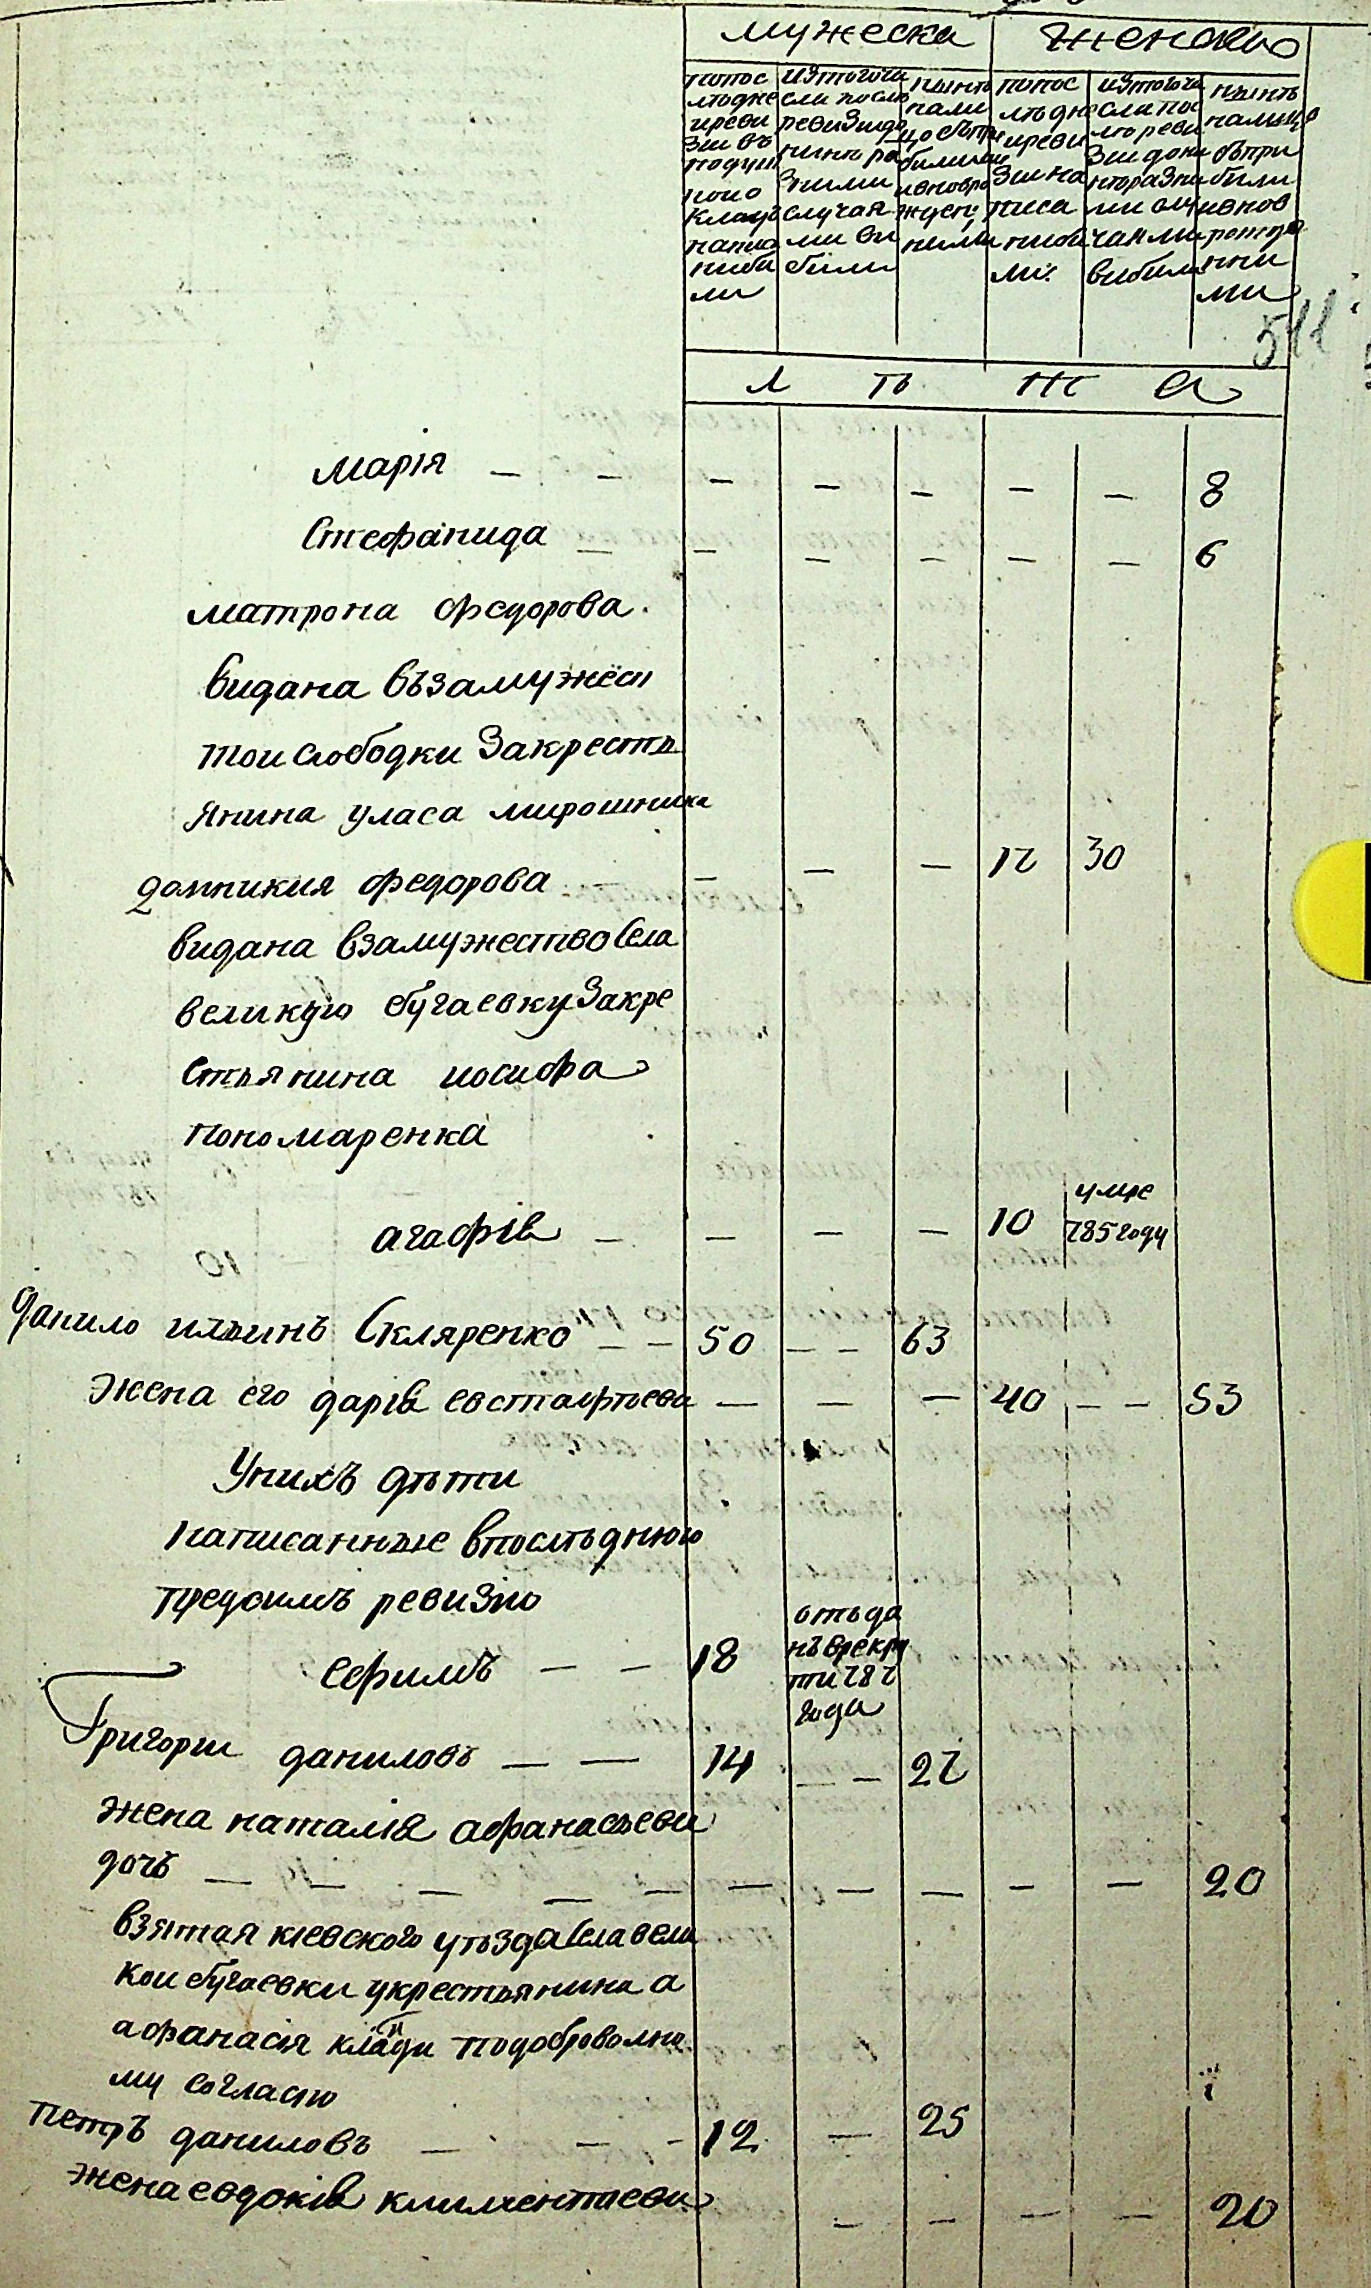 мужеска женска
попос
лѣдне
иреви
зии въ
подуш
ном о
кладѣ
напис
ниби
ли
изтогочи
сли послѣ
ревизиидо
нинѣ ра
зними
случая
ми ви
били
нынѣ
нали
цо съпри
билими
ивновро
жден
ними
попос
лѣдне
иреви
зии на
писа
ниби
ли
изтогочи
сли пос
лѣ реви
зии дони
нѣразни
ми слу
чаями
вибили
нынѣ
налице
съпри
били
ивнов
рожде
нни
ми
511
л ѣ т а
марія — — — — — — — 8
Стефанида — — — — — — 6
матрона федорова.
видана възамужест
тои слободки Закресть
янина уласа мирошника
домникия федорова — — — 17 30
видана взамужество села
великую бугаевку Закре
стьянина иосифа
пономаренка
агафія — — — — 10 умре
785 году
данило ильинъ Скляренко — — 50 — — 63
жена его дарія евстафиева — — — 40 — — 53
Унихъ дѣти
написанные впослѣднюю
предсимъ ревизію
ефимъ — — 18 отъда
нъврекру
ти 787
года
Григории даниловъ — — 14 — — 27
жена наталія афанасьева
дочь — — — — — — — — — — 20
взятая кіевского уѣзда села вели
кои бугаевки укрестьянина а
афанасія клади подобровольно
му согласію
петръ даниловъ — — — 12 — 25
жена евдокія климентиева — — — — 20